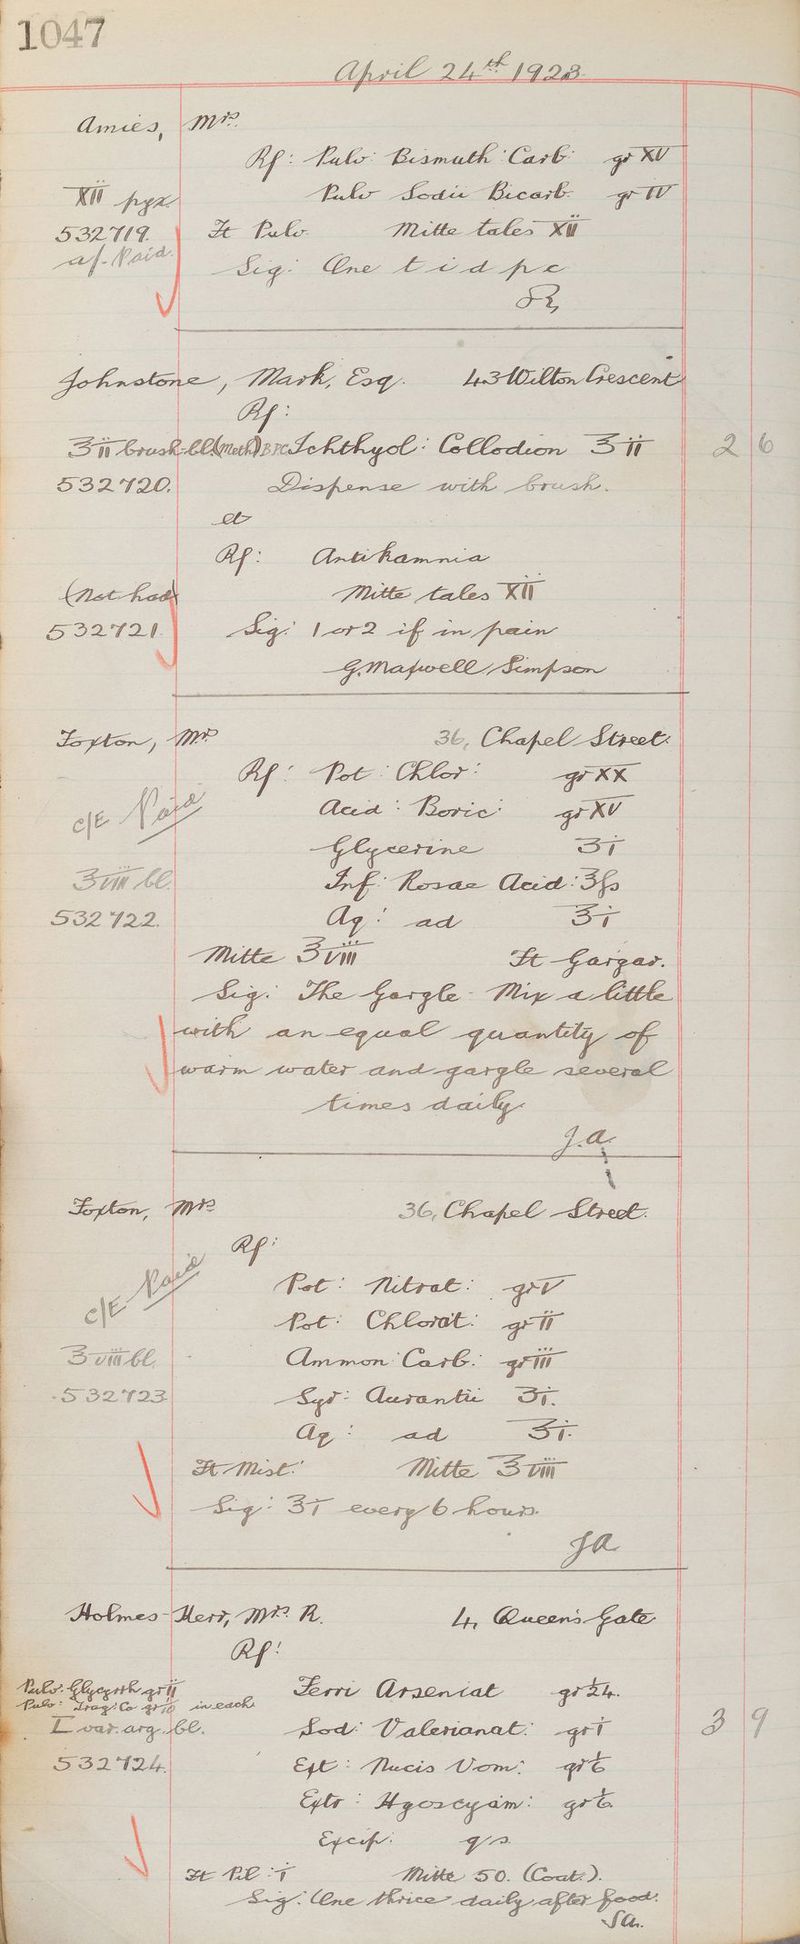 1047
April 24th 1923
Amies, Mrs
Rf: Pulv: Bismuth: Carb: gr XV
XII pyx Pulv Sodii Bicarb. gr IV
532719. Ft Pulv. Mitte tales XII
a/- Paid. Sig: One t i d p c
Johnstone, Mark, Esq. 43 Wilton Crescent
Rf:
Ʒii brush-bl. (Meth) B.P.C. Ichthyol: Collodion Ʒii 2 6
532720. Dispense with brush.
et
Rf: Antikamnia
(Not had) Mitte tales XII
532721 Sig: 1 or 2 if in pain
G. Maxwell Simpson
Foxton, Mrs 36, Chapel Street.
Rf: Pot: Chlor: gr XX
c/E Paid Acid: Boric: gr XV
Glycerine Ʒi
℥viii bl. Inf: Rosae Acid: ℥fs
532722. Aq: ad ℥i
Mitte ℥viii Ft Gargar.
Sig: The Gargle Mix a little
with an equal quantity of
warm water and gargle several
times daily.
J.A.
Foxton, Mrs 36, Chapel Street.
Rf:
c/E Paid Pot: Nitrat: gr V
Pot: Chlorat: gr II
℥viii bl. Ammon: Carb: gr III
532723 Syr: Aurantii Ʒi.
Aq: ad ℥i.
Ft Mist: Mitte ℥viii
Sig: ℥i every 6 hours.
JA
Holmes-Kerr, Mrs. R. 4, Queen's Gate
Rf:
Pulv: Glycyrrh gr ii Ferri Arseniat gr 1/24.
Pulv: Trag: Co gr 1/10 in each
I var. arg. bl. Sod: Valerianat: gr i 3 9
532724. Ext: Nucis Vom: gr 1/6
Extr: Hyoscyam: gr 1/6.
Excip: qs
Ft Pil: i Mitte 50. (Coat.).
Sig: One thrice daily after food.
SA.